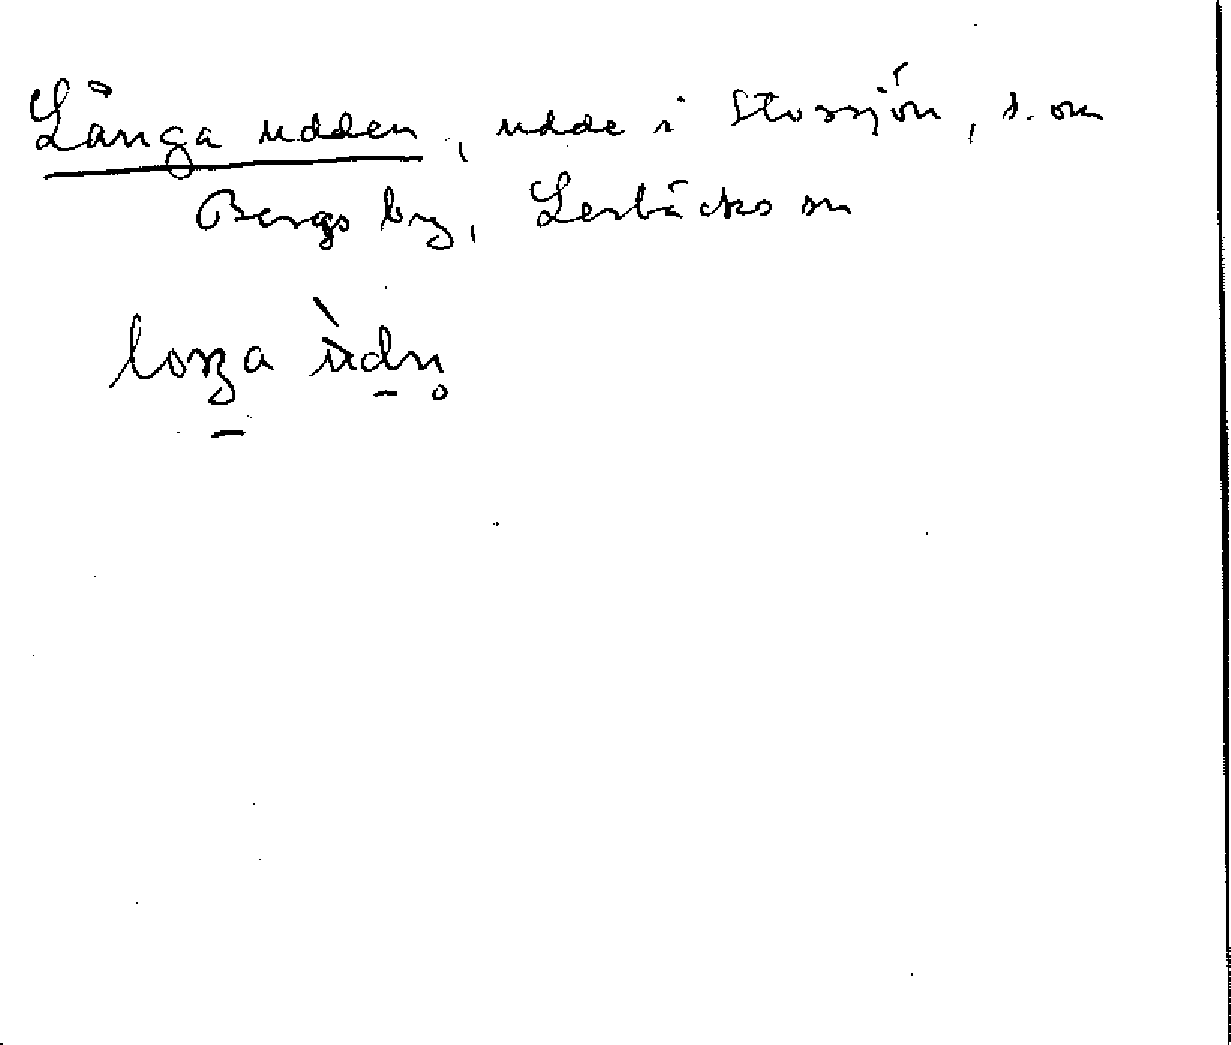 Långa udden, udde i Storsjön, s. om
Bergs by, Lerbäcks sn
loŋa ùdn̥